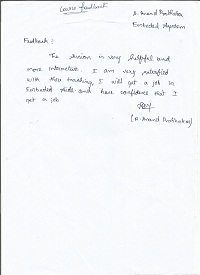 Course Feedback
R. Anand Prabhakar
Embeded system
Feedback:
The session is very helpful and
more interested. I am very satisfied
with this teaching, I will get a job in
Embeded field and have confidence that I
get a job
(R. Anand Prabhakar)